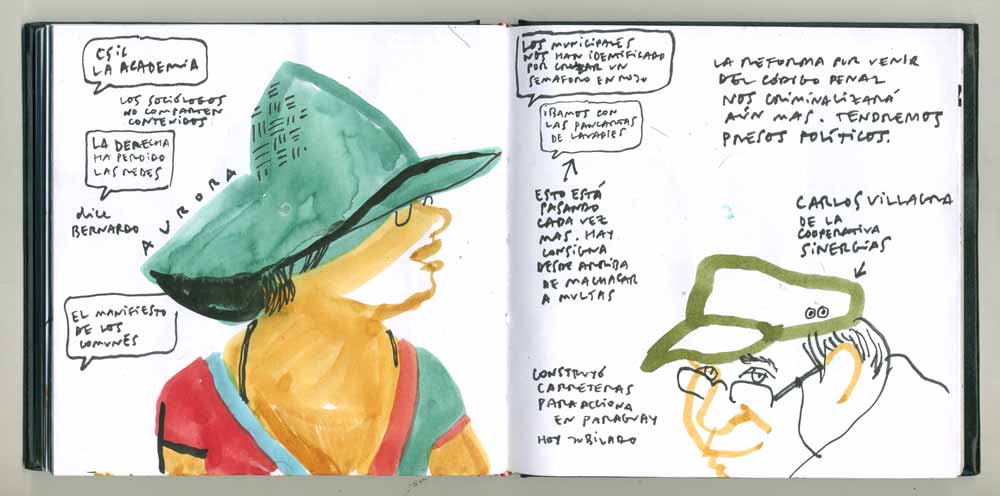 CSIC
LA ACADEMIA
LOS SOCIÓLOGOS
NO COMPARTEN
CONTENIDOS
LA DERECHA
HA PERDIDO
LAS REDES
dice
BERNARDO
AURORA
EL MANIFIESTO
DE LOS
COMUNES
LOS MUNICIPALES
NOS HAN IDENTIFICADO
POR CRUZAR UN
SEMAFORO EN ROJO
IBAMOS CON
LAS PANCARTAS
DE LAVAPIES
ESTO ESTÁ
PASANDO
CADA VEZ
MAS. HAY
CONSIGNA
DESDE ARRIBA
DE MACHACAR
A MULTAS
LA REFORMA POR VENIR
DEL CÓDIGO PENAL
NOS CRIMINALIZARÁ
AÚN MAS. TENDREMOS
PRESOS POLÍTICOS.
CARLOS VILLAGRA
DE LA
COOPERATIVA
SINERGIAS
CONSTRUYÓ
CARRETERAS
PARA ACCIONA
EN PARAGUAY
HOY JUBILADO